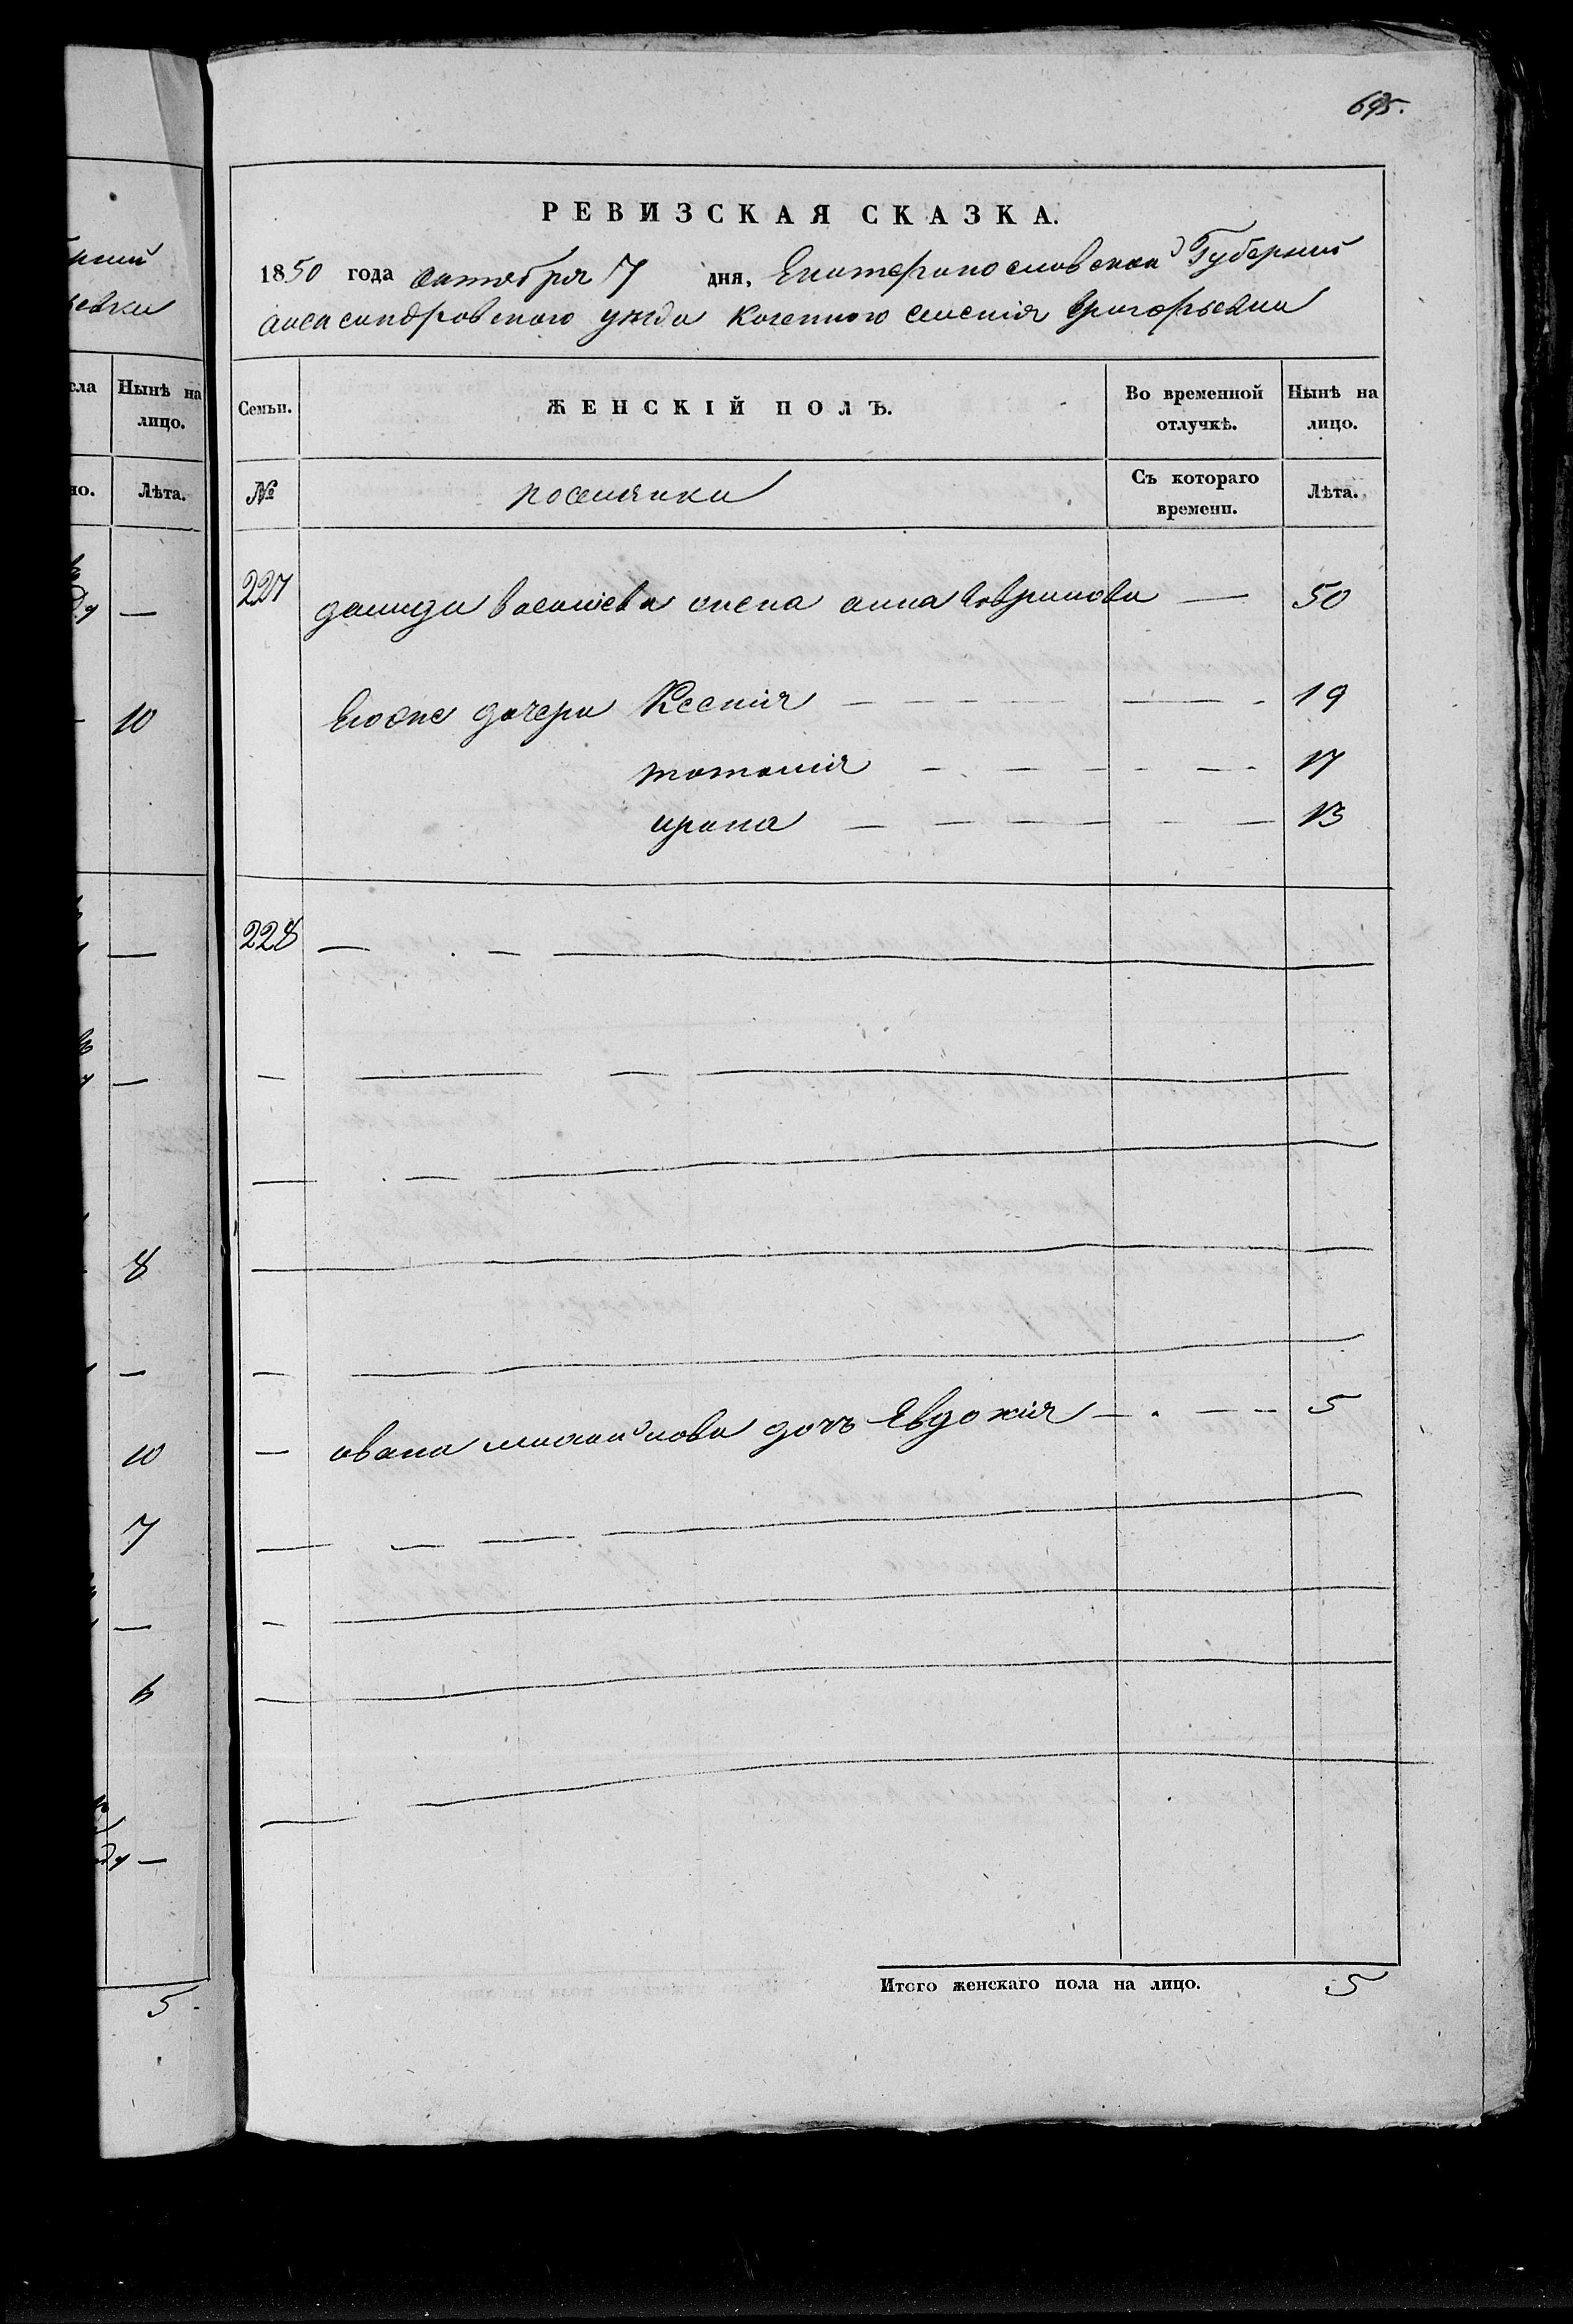 695.
РЕВИЗСКАЯ СКАЗКА.
1850 года октября 7 дня, Екатеринославской Губернии
Александровского уезда Казенного селения Григорьевки
Семьи. ЖЕНСКІЙ ПОЛЪ. Во временной отлучкѣ. Нынѣ на лицо.
№ поселянки Съ котораго времени. Лѣта.
227 данила васильева жена анна гаврилова — 50
Его же дочери Ксения — 19
татания — 17
ирина — 13
228 —
— ивана михайлова дочъ Евдокия — 5
Итого женскаго пола на лицо. 5
Нынѣ на лицо.
Лѣта.
—
10
—
—
8
—
10
7
—
6
—
5